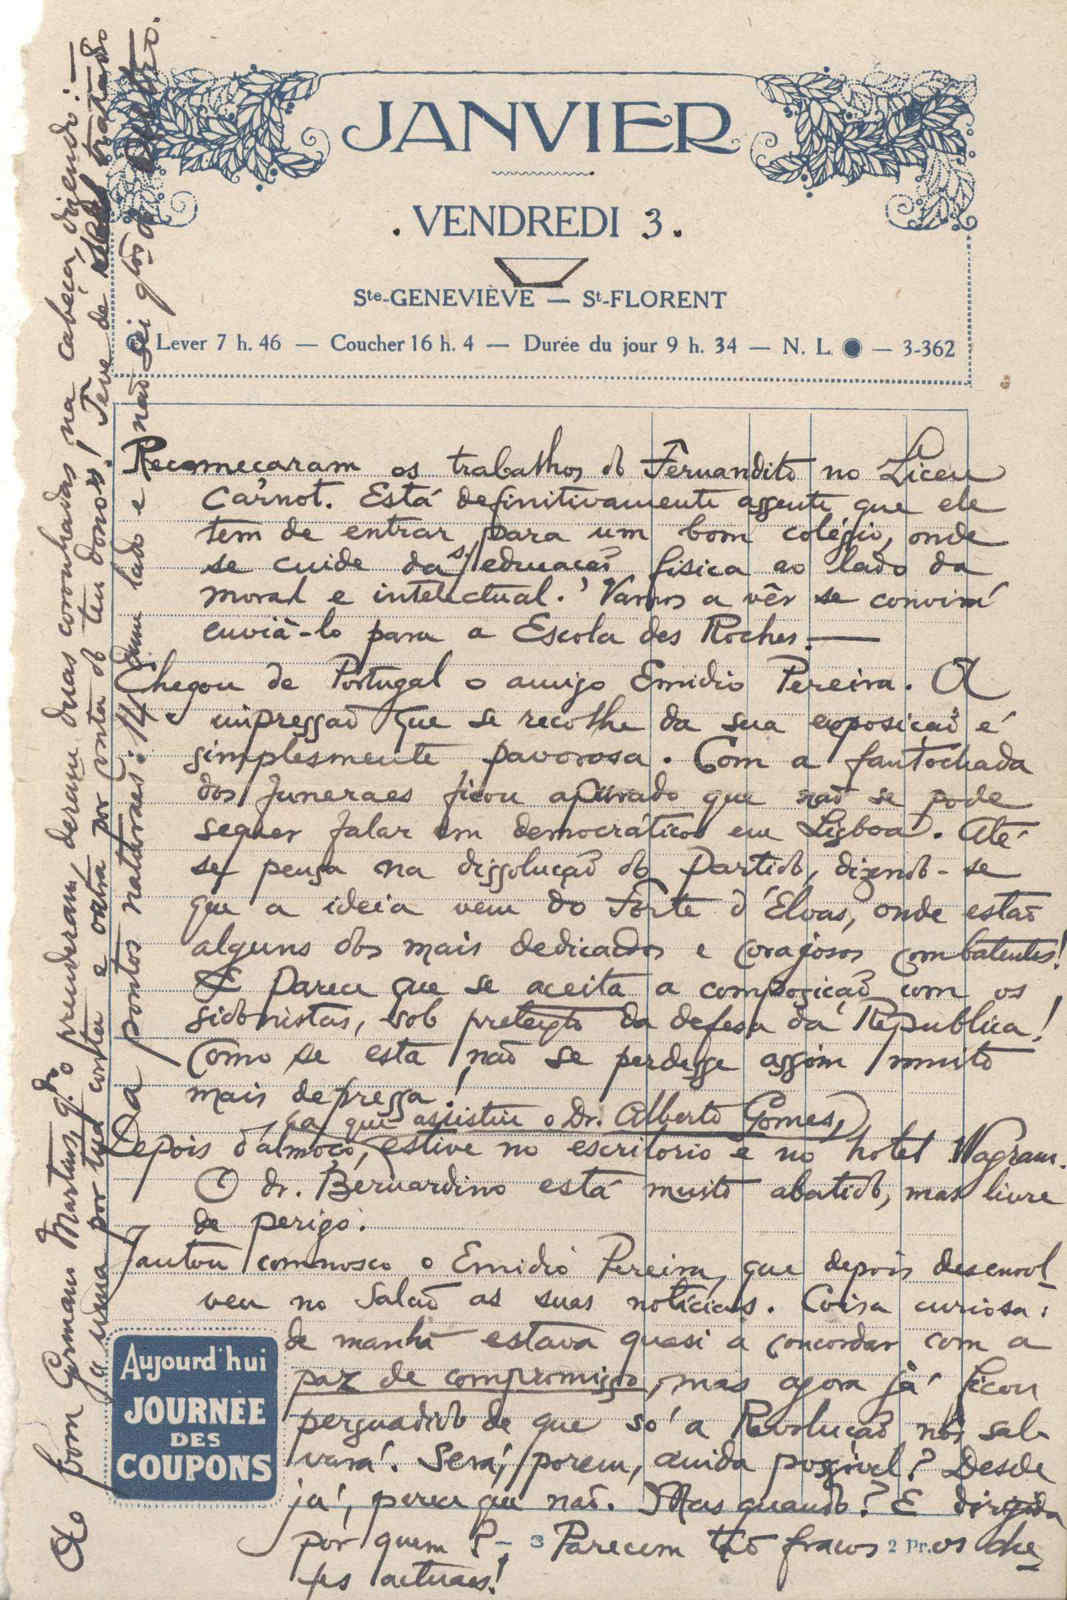 JANVIER
. VENDREDI 3 .
Ste-GENEVIÈVE — St-FLORENT
Lever 7 h. 46 — Coucher 16 h. 4 — Durée du jour 9 h. 34 — N. L. — 3-362
Recomeçaram os trabalhos do Fernandito no Liceu
Carnot. Está definitivamente assente que ele
tem de entrar para um bom colégio, onde
se cuide da s/ educação fisica ao lado da
moral e intelectual. Vamos a vêr se convirá
enviá-lo para a Escola des Roches.—
Chegou de Portugal o amigo Emidio Pereira. A
impressão que se recolhe da sua exposição é
simplesmente pavorosa. Com a fantochada
dos funeraes ficou apurado que não se pode
sequer falar em democráticos em Lisboa. Até
se pensa na dissolução do Partido, dizendo-se
que a ideia vem do Forte d'Elvas, onde estão
alguns dos mais dedicados e corajosos combatentes!
E parece que se aceita a composição com os
sidonistas, sob pretexto da defesa da Republica!
Como se esta não se perdesse assim muito
mais depressa!
(a que assistiu o Dr. Alberto Gomes,)
Depois d'almoço, estive no escritorio e no hotel Wagram.
O dr. Bernardino está muito abatido, mas livre
de perigo.
Jantou comnosco o Emidio Pereira, que depois desenvol-
veu no Salão as suas notícias. Coisa curiosa:
de manhã estava quasi a concordar com a
paz de compromisso, mas agora já ficou
persuadido de que só a Revolução nos sal-
vará. Será, porem, ainda possivel? Desde
já, parece que não. Mas quando? E dirigida
por quem? – Parecem tão fracos os che-
fes actuaes!
3
2 Pr.
Aujourd'hui
JOURNÉE
DES
COUPONS
Ao pobre Germano Martins, qdo o prenderam, deram duas coronhadas na cabeça, dizendo:—
Já uma por tua conta e outra por conta do teu dono! Teve de ser tratado
a pontos naturaes: 14 dum lado e não sei qtos do outro.